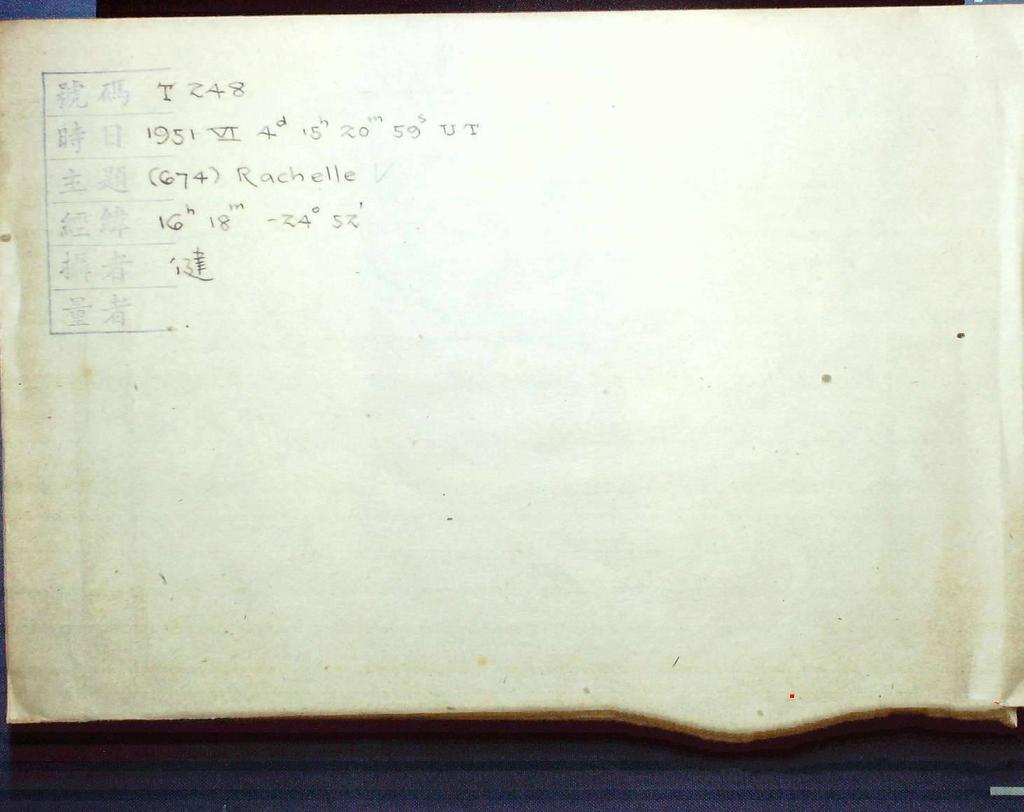 號碼 T 248
時日 1951 VI 4ᵈ 15ʰ 20ᵐ 59ˢ UT
主題 (674) Rachelle ✓
經緯 16ʰ 18ᵐ -24° 52'
攝者 健
量者